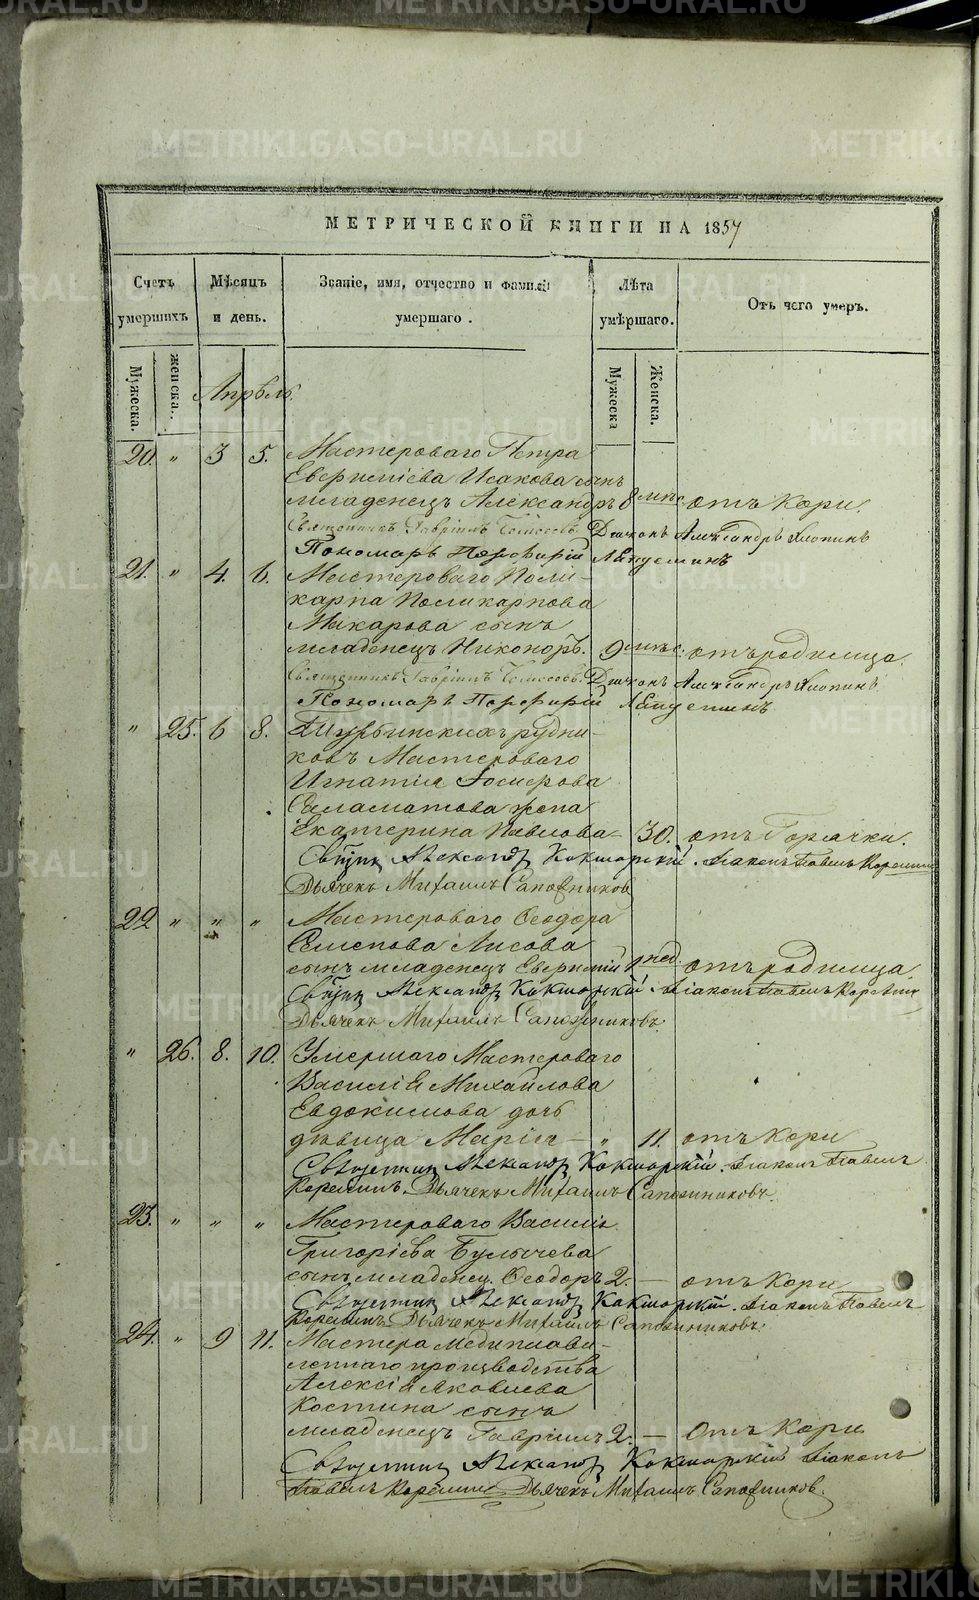 METRIKI.GASO-URAL.RU
МЕТРИЧЕСКОЙ КНИГИ НА 1857
Счетъ умершихъ
Мѣсяцъ и день.
Званіе, имя, отчество и фамилія умершаго.
Лѣта умершаго.
Отъ чего умеръ.
Мужеска.
женска.
Мужеска
Женска.
Апрѣль.
20. " 3 5. Мастероваго Петра
Евфиміева Исакова сынъ
младенецъ Александръ 8 мѣс. отъ Кори.
Священникъ Гавріилъ Діаконъ Александръ Хлопинъ
Пономарь Порфирій
21. " 4. 6. Мастероваго Поли-
карпа Поликарпова
Макарова сынъ
младенецъ Никоноръ. 9 мѣс. отъ родимца.
Священникъ Гавріилъ Діаконъ Александръ Хлопинъ
Пономарь Порфирій
" 25. 6 8. Турьинскихъ рудни-
ковъ Мастероваго
Игнатія
Саламатова жена
Екатерина Павлова - 30. отъ Горячки.
Свящ. Александръ Кокшарскій. Діаконъ Павелъ
Дьячекъ Михаилъ Сапожниковъ
22 " " " Мастероваго Ѳеодора
Семенова Лисова
сынъ младенецъ 1 нед. отъ родимца.
Свящ. Александръ Кокшарскій. Діаконъ Павелъ
Дьячекъ Михаилъ Сапожниковъ
" 26. 8. 10. Умершаго Мастероваго
Василія Михайлова
Евдокимова дочь
дѣвица Марія - " 11. отъ Кори
Священник Александръ Кокшарскій. Діаконъ Павелъ
Дьячекъ Михаилъ Сапожниковъ.
23. " " " Мастероваго Василія
Григоріева Булычева
сынъ младенец. Ѳеодоръ 2. — отъ Кори
Священник Александръ Кокшарскій. Діаконъ Павелъ
Дьячекъ Михаилъ Сапожниковъ.
24. " 9 11. Мастера медиплави-
леннаго производства
Алексія Яковлева
Костина сынъ
младенецъ Гавріилъ 2. — Отъ Кори
Священник Александръ Кокшарскій Діаконъ
Павелъ Дьячекъ Михаилъ Сапожников.